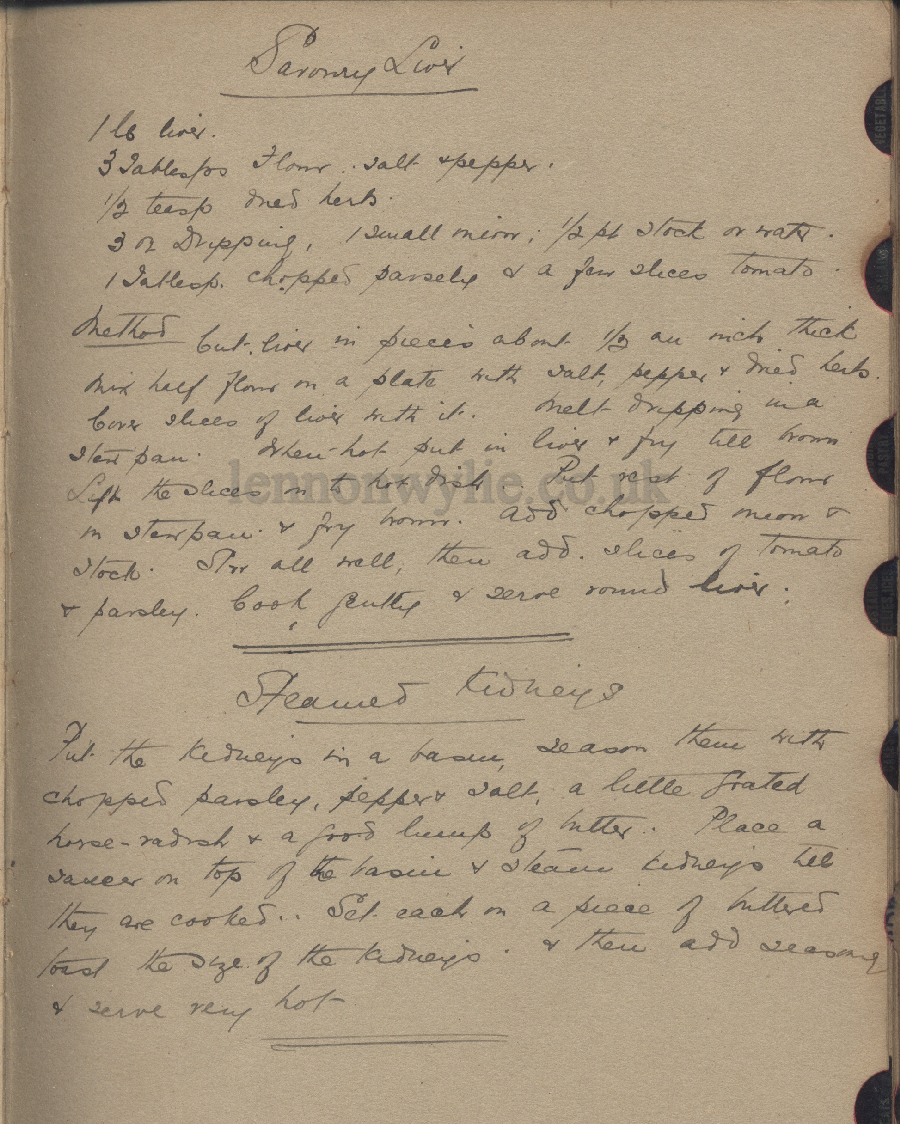 Savoury Liver
1 lb liver.
3 Tablesps Flour. salt & pepper.
1/2 teasp dried herbs.
3 oz Dripping, 1 small onion; 1/2 pt stock or water.
1 Tablesp. chopped parsely & a few slices tomato.
Method Cut liver in pieces about 1/2 an inch thick
Mix half flour on a plate with salt, pepper & dried herbs.
Cover slices of liver with it. Melt dripping in a
stew pan. When hot put in liver & fry till brown
Lift the slices on to hot dish. Put rest of flour
in stewpan & fry brown. Add chopped onion &
stock. Stir all well, then add slices of tomato
& parsley. Cook gently & serve round liver.
Steamed Kidneys
Put the kidneys in a basin, season them with
chopped parsley, pepper & salt, a little grated
horse-radish & a good lump of butter. Place a
saucer on top of the basin & steam kidneys till
they are cooked.. Set each on a piece of buttered
toast the size of the kidneys. & then add seasoning
& serve very hot
lennonwylie.co.uk
VEGETABLE